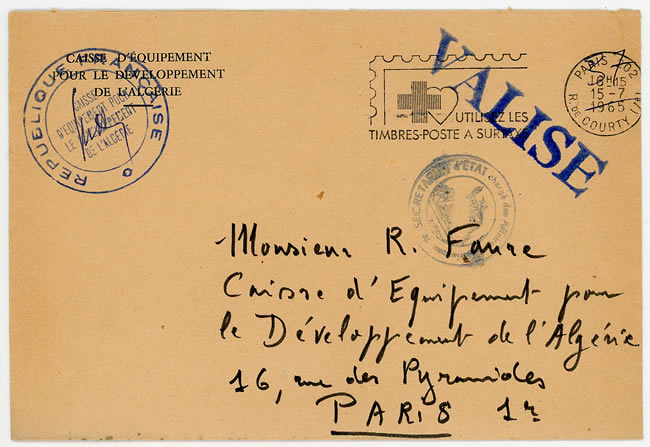 CAISSE D'ÉQUIPEMENT
POUR LE DÉVELOPPEMENT
DE L'ALGÉRIE
RÉPUBLIQUE FRANÇAISE
CAISSE
D'EQUIPEMENT POUR
LE
DE L'ALGÉRIE
UTILISEZ LES
TIMBRES-POSTE A SURTAXE
VALISE
PARIS 102
18H15
15-7
1965
R. DE COURTY (7e)
SECRETARIAT D'ÉTAT chargé des
Monsieur R. Faure
Caisse d'Equipement pour
le Développement de l'Algérie
16, rue des Pyramides
PARIS 1er